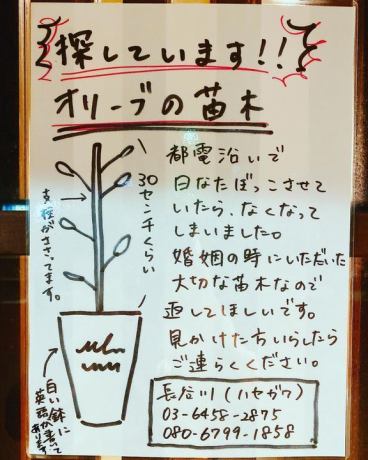 探しています!!
オリーブの苗木
都電沿いで
日なたぼっこさせて
いたら、なくなって
しまいました。
婚姻の時にいただいた
大切な苗木なので
返してほしいです。
見かけた方いらしたら
ご連らくください。
長谷川(ハセガワ)
03-6458-2875
080-6799-1858
30センチくらい
支柱がささってます。
白い鉢に
英語が書いて
あります